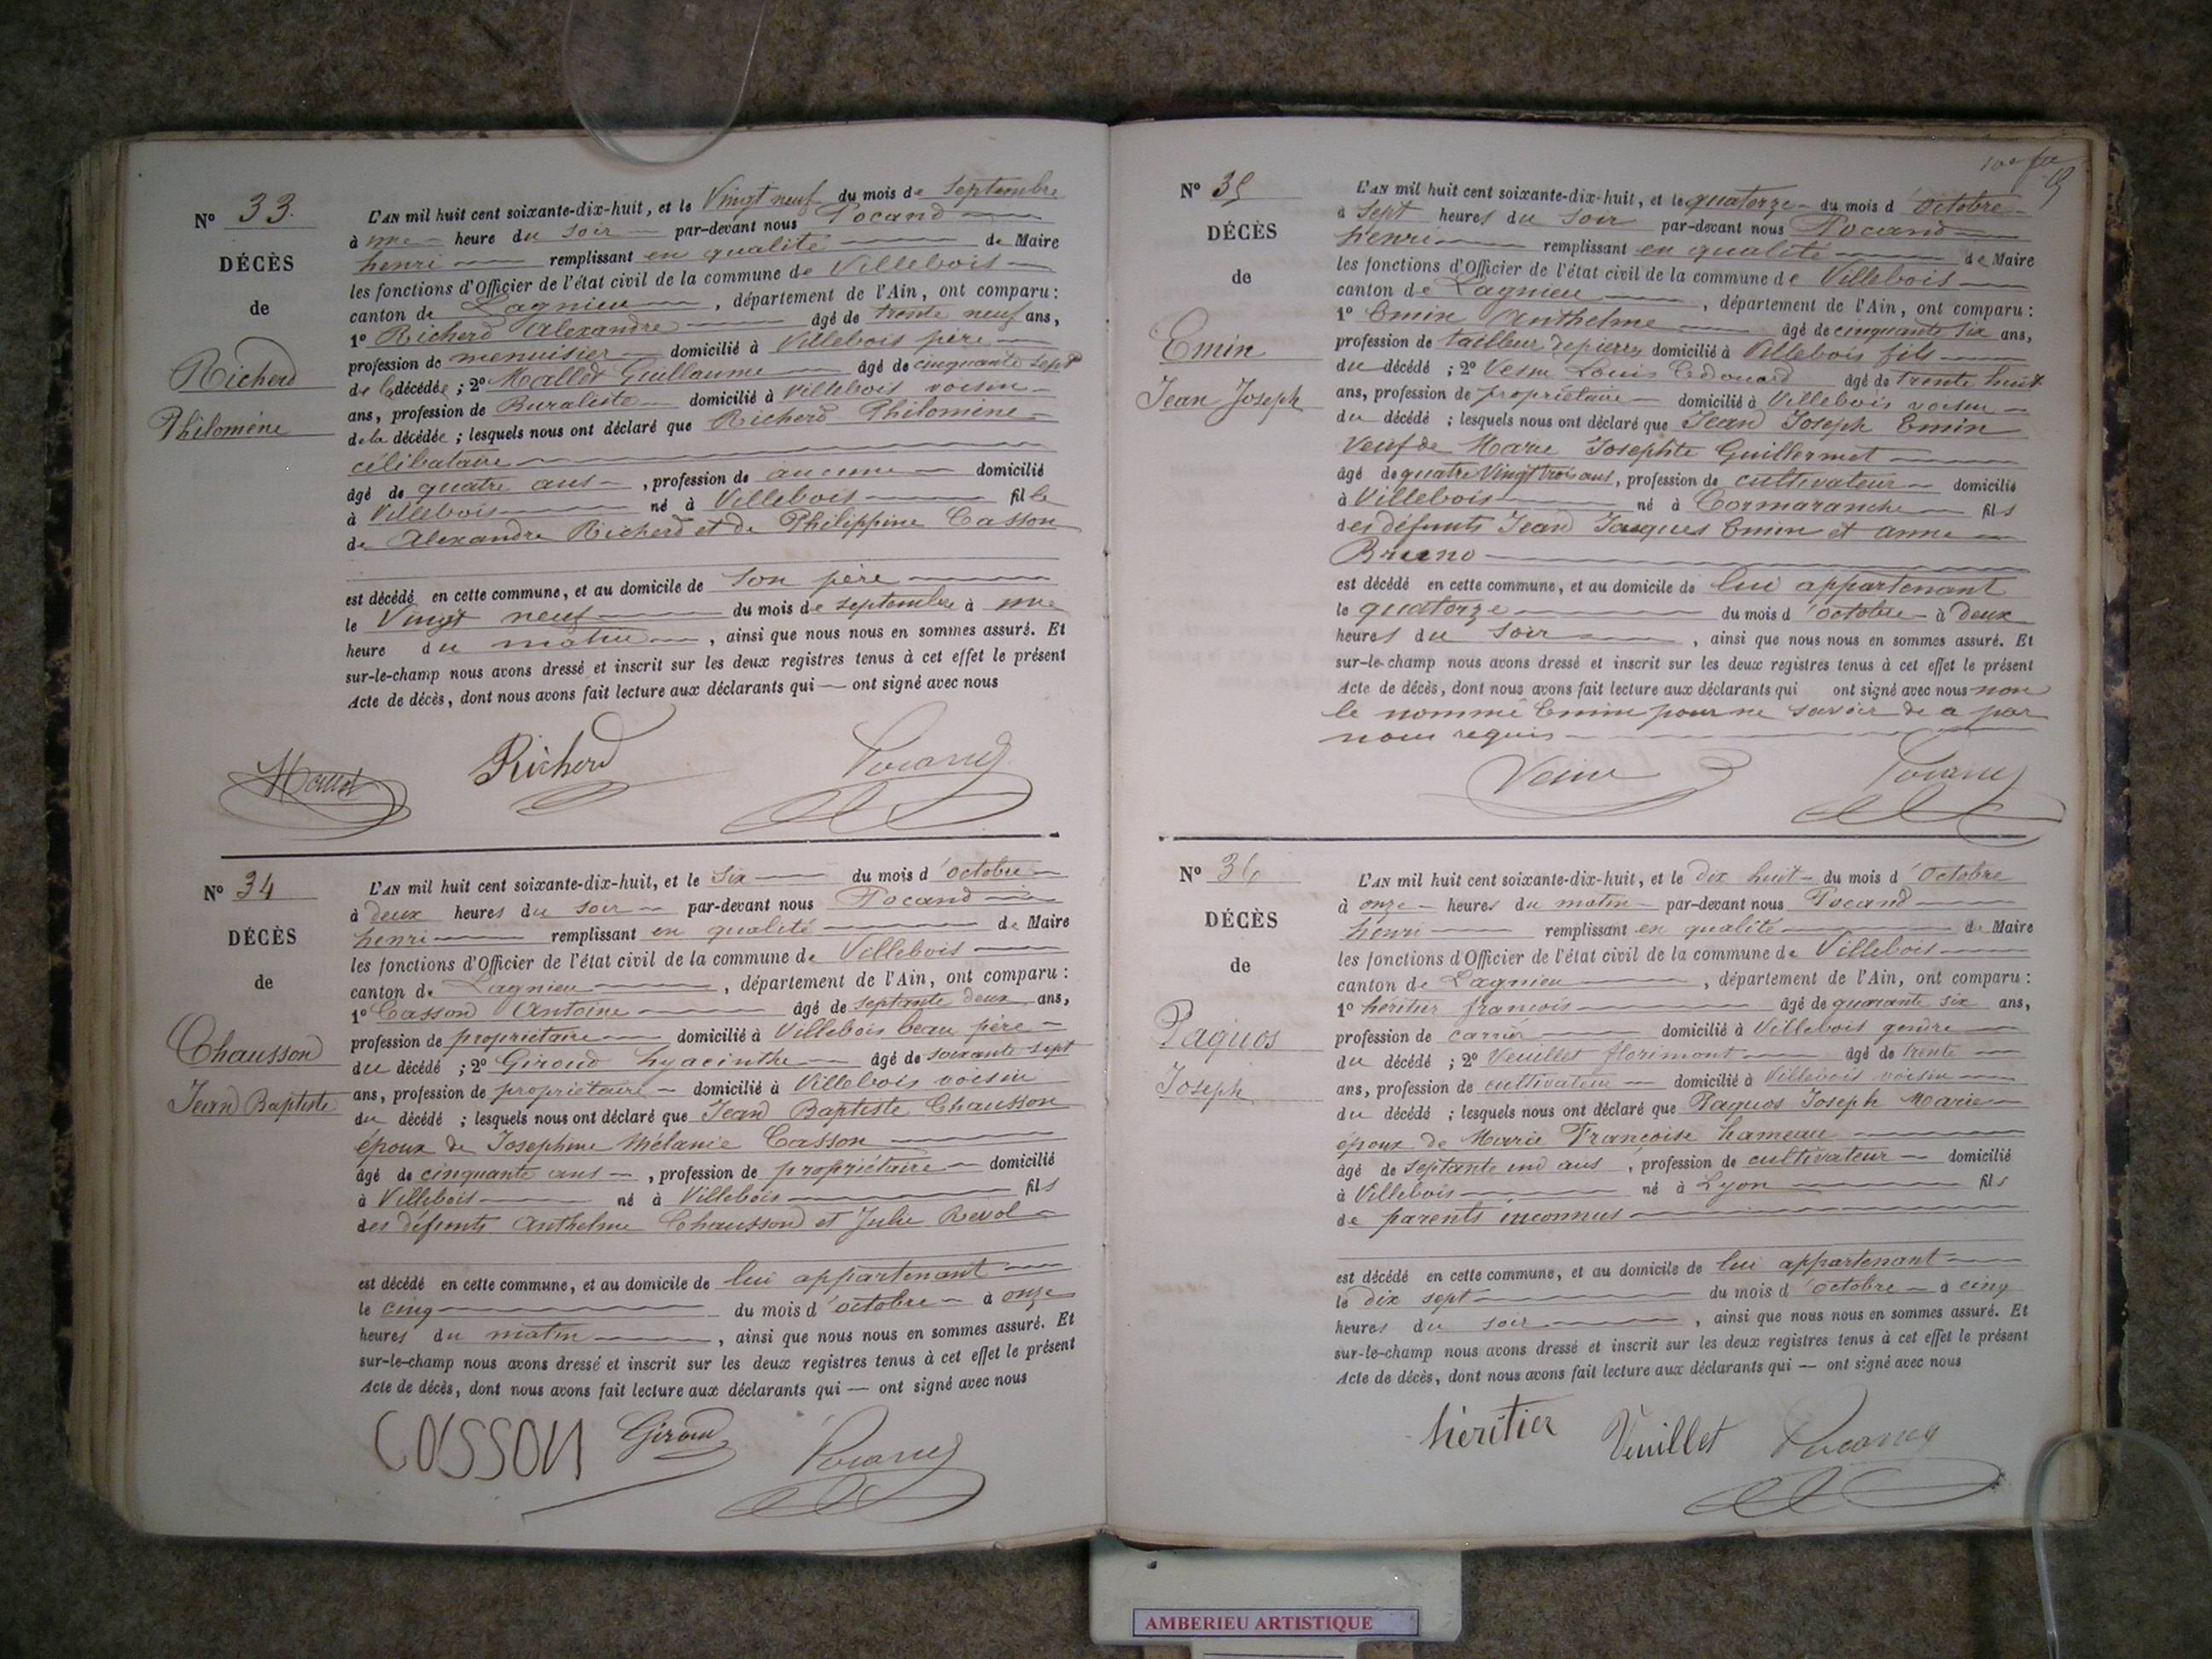 N° 33.
DÉCÈS
de
Richerd
Philomène
L'AN mil huit cent soixante-dix-huit, et le Vingt neuf du mois de Septembre
à une heure du soir par-devant nous Pocand
henri remplissant en qualité de Maire
les fonctions d'Officier de l'état civil de la commune de Villebois
canton de Lagnieu, département de l'Ain, ont comparu :
1° Richerd Alexandre âgé de trente neuf ans,
profession de menuisier domicilié à Villebois père
de la décédée ; 2° Mallet Guillaume âgé de cinquante sept
ans, profession de Buraliste domicilié à Villebois voisin
de la décédée ; lesquels nous ont déclaré que Richerd Philomène
célibataire
âgé de quatre ans, profession de aucune domicilié
à Villebois né à Villebois fille
de Alexandre Richerd et de Philippine Casson
est décédé en cette commune, et au domicile de son père
le Vingt neuf du mois de septembre à une
heure du matin, ainsi que nous nous en sommes assuré. Et
sur-le-champ nous avons dressé et inscrit sur les deux registres tenus à cet effet le présent
Acte de décès, dont nous avons fait lecture aux déclarants qui — ont signé avec nous
Mallet Richerd Pocand
N° 34
DÉCÈS
de
Chausson
Jean Baptiste
L'AN mil huit cent soixante-dix-huit, et le Six du mois d'octobre
à deux heures du soir par-devant nous Pocand
henri remplissant en qualité de Maire
les fonctions d'Officier de l'état civil de la commune de Villebois
canton de Lagnieu, département de l'Ain, ont comparu :
1° Casson Antoine âgé de septante deux ans,
profession de propriétaire domicilié à Villebois beau père
du décédé ; 2° Giroud hyacinthe âgé de soixante sept
ans, profession de propriétaire domicilié à Villebois voisin
du décédé ; lesquels nous ont déclaré que Jean Baptiste Chausson
époux de Josephine Mélanie Casson
âgé de cinquante ans, profession de propriétaire domicilié
à Villebois né à Villebois fils
des défunts Anthelme Chausson et Julie Revol
est décédé en cette commune, et au domicile de lui appartenant
le cinq du mois d'octobre à onze
heures du matin, ainsi que nous nous en sommes assuré. Et
sur-le-champ nous avons dressé et inscrit sur les deux registres tenus à cet effet le présent
Acte de décès, dont nous avons fait lecture aux déclarants qui — ont signé avec nous
COSSON Giroud Pocand
N° 35
DÉCÈS
de
Emin
Jean Joseph
L'AN mil huit cent soixante-dix-huit, et le quatorze du mois d'Octobre
à Sept heures du soir par-devant nous Pocand
henri remplissant en qualité de Maire
les fonctions d'Officier de l'état civil de la commune de Villebois
canton de Lagnieu, département de l'Ain, ont comparu :
1° Emin Anthelme âgé de cinquante six ans,
profession de tailleur de pierre domicilié à Villebois fils
du décédé ; 2° Louis Edouard âgé de trente huit
ans, profession de propriétaire domicilié à Villebois voisin
du décédé ; lesquels nous ont déclaré que Jean Joseph Emin
Veuf de Marie Josephte Guillermet
âgé de quatre Vingt trois ans, profession de cultivateur domicilié
à Villebois né à Cormaranche fils
des défunts Jean Jacques Emin et anne
Bruno
est décédé en cette commune, et au domicile de lui appartenant
le quatorze du mois d'octobre à deux
heures du soir, ainsi que nous nous en sommes assuré. Et
sur-le-champ nous avons dressé et inscrit sur les deux registres tenus à cet effet le présent
Acte de décès, dont nous avons fait lecture aux déclarants qui ont signé avec nous non
le nommé Emin pour ne savoir de a par
nous requis
Pocand
N° 36
DÉCÈS
de
Paquos
Joseph
L'AN mil huit cent soixante-dix-huit, et le dix huit du mois d'Octobre
à onze heures du matin par-devant nous Pocand
henri remplissant en qualité de Maire
les fonctions d'Officier de l'état civil de la commune de Villebois
canton de Lagnieu, département de l'Ain, ont comparu :
1° héritier françois âgé de quarante six ans,
profession de carrier domicilié à Villebois gendre
du décédé ; 2° Veuillet florimont âgé de trente
ans, profession de cultivateur domicilié à Villebois voisin
du décédé ; lesquels nous ont déclaré que Paquos Joseph Marie
époux de Marie Françoise hameau
âgé de septante un ans, profession de cultivateur domicilié
à Villebois né à Lyon fils
de parents inconnus
est décédé en cette commune, et au domicile de lui appartenant
le dix sept du mois d'octobre à cinq
heures du soir, ainsi que nous nous en sommes assuré. Et
sur-le-champ nous avons dressé et inscrit sur les deux registres tenus à cet effet le présent
Acte de décès, dont nous avons fait lecture aux déclarants qui — ont signé avec nous
héritier Veuillet Pocand
AMBERIEU ARTISTIQUE